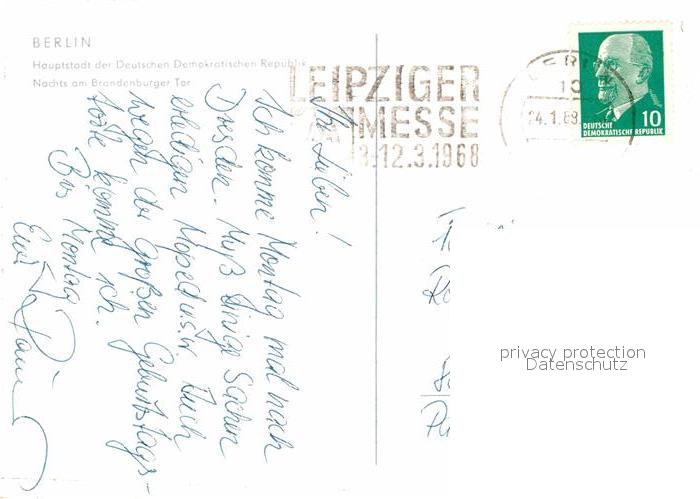 BERLIN
Hauptstadt der Deutschen Demokratischen Republik
Nachts am Brandenburger Tor
LEIPZIGER
MESSE
3.-12.3.1968
BERLIN
10
24.1.68
10
DEUTSCHE
DEMOKRATISCHE REPUBLIK
Ihr Lieben!
Ich komme Montag mal nach
Dresden. Muß einige Sachen
erledigen Moped u.s.w. Auch
wegen der Großen Geburtstags-
torte komme ich.
Bis Montag
Euer
privacy protection
Datenschutz